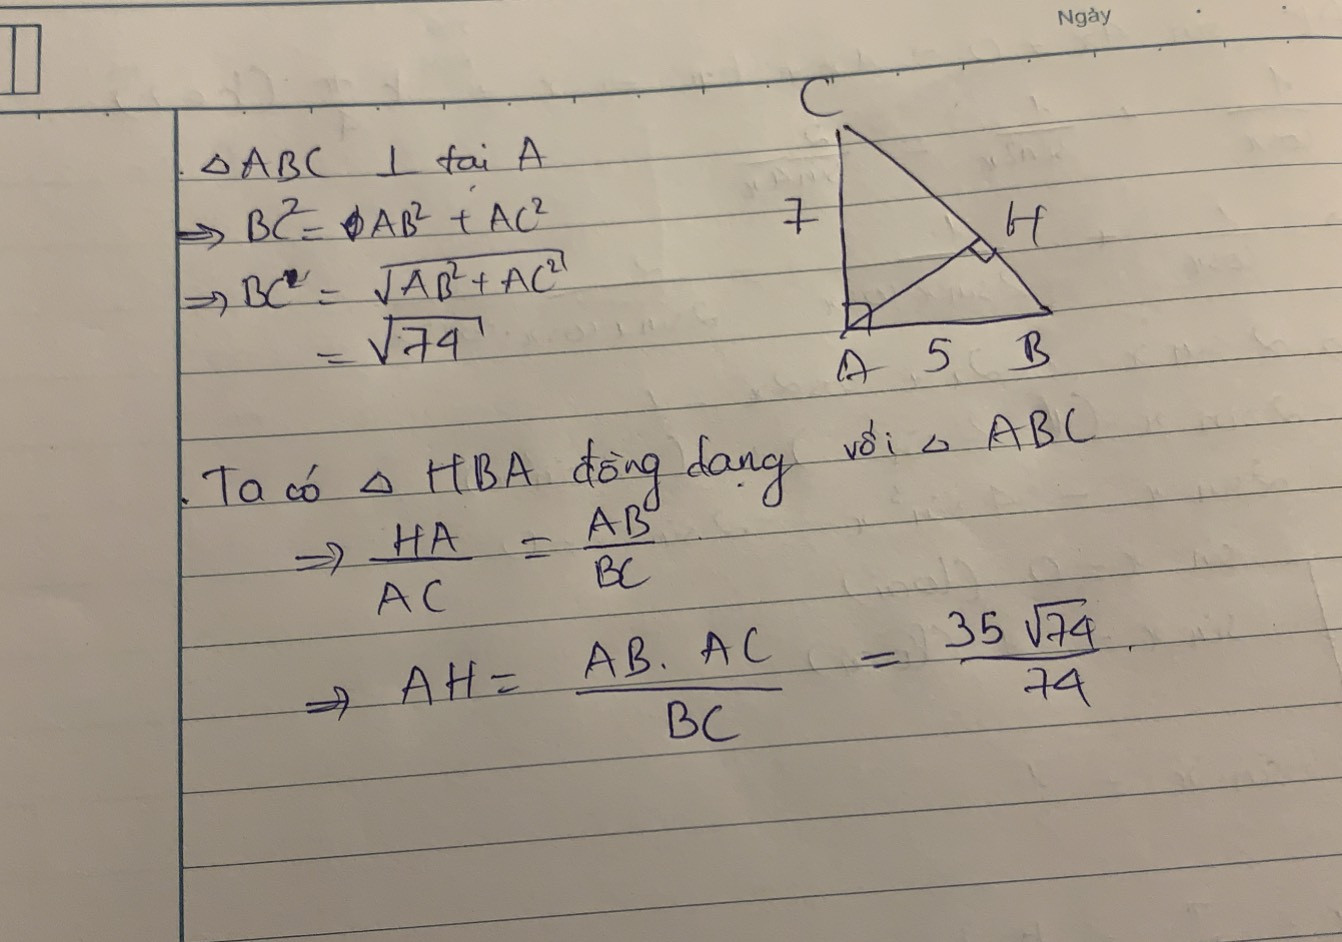 Ngày
C
△ABC ⊥ tại A
⇒ BC² = AB² + AC²
7
H
⇒ BC = √(AB² + AC²)
= √74
A 5 B
Ta có △ HBA đồng dạng với △ ABC
⇒ HA/AC = AB/BC
⇒ AH = AB. AC/BC = 35√74/74.